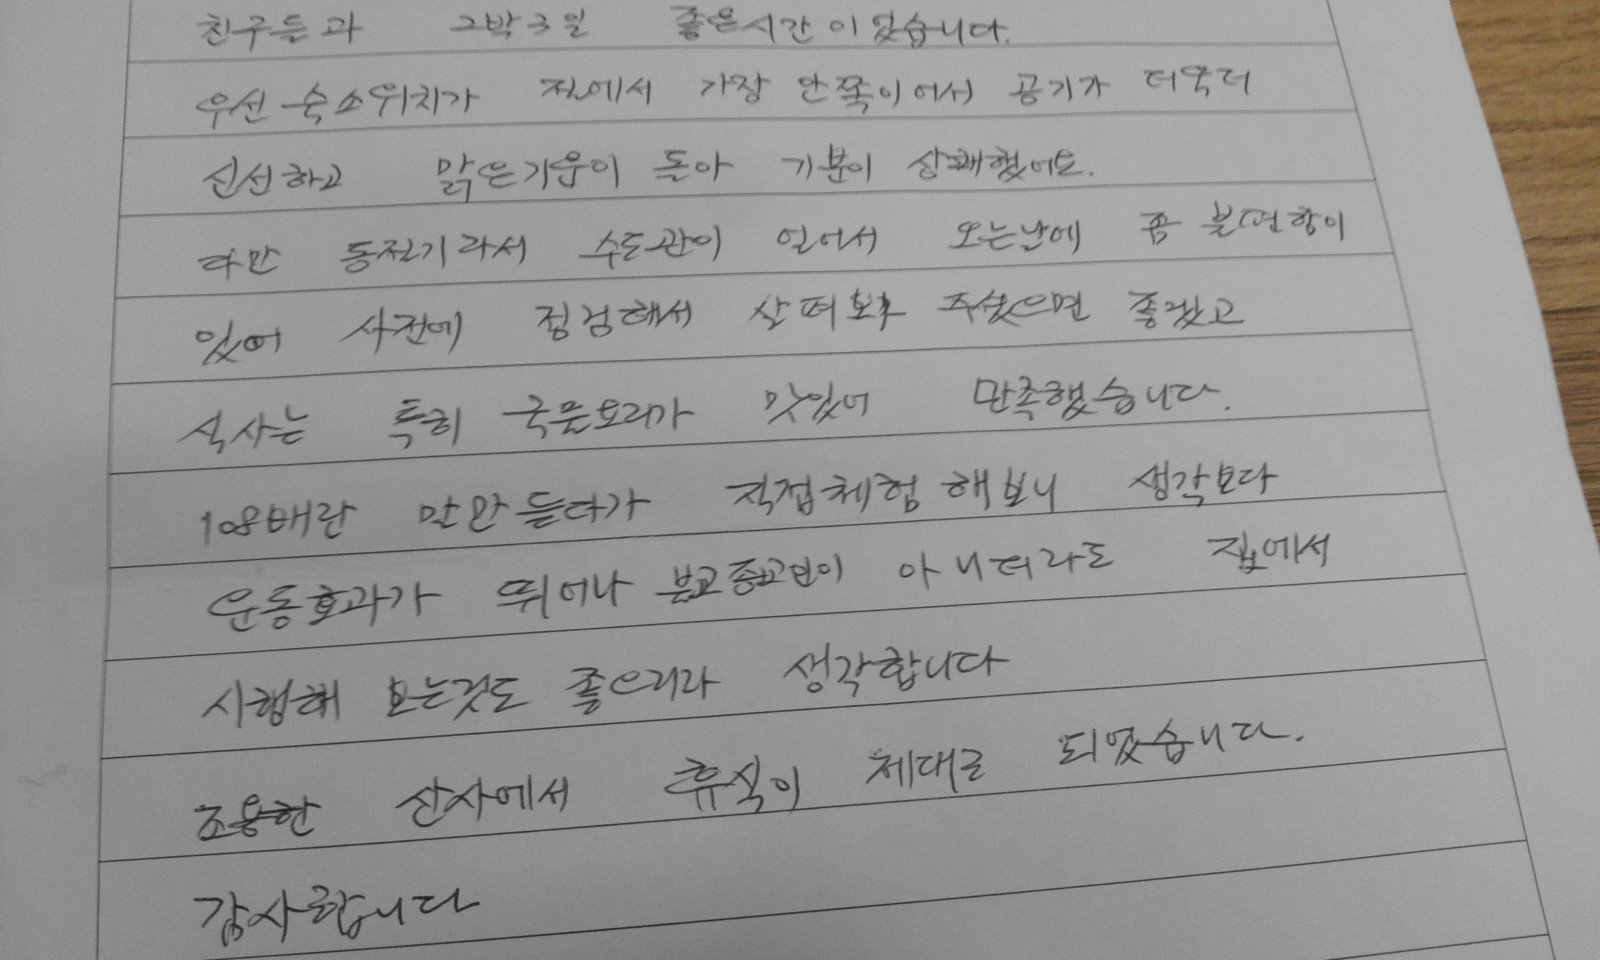 친구들과 2박3일 좋은시간이었습니다.
우선 숙소위치가 절에서 가장 안쪽이어서 공기가 더욱더
신선하고 맑은기운이 돌아 기분이 상쾌했어요.
다만 동절기라서 수도관이 얼어서 오는날에 좀 불편함이
있어 사전에 점검해서 살펴봐 주셨으면 좋겠고
식사는 특히 국물요리가 맛있어 만족했습니다.
108배란 말만 들다가 직접체험 해보니 생각보다
운동효과가 뛰어나 불교종교인이 아니더라도 집에서
시행해 보는것도 좋으리라 생각합니다
조용한 산사에서 휴식이 제대로 되었습니다.
감사합니다